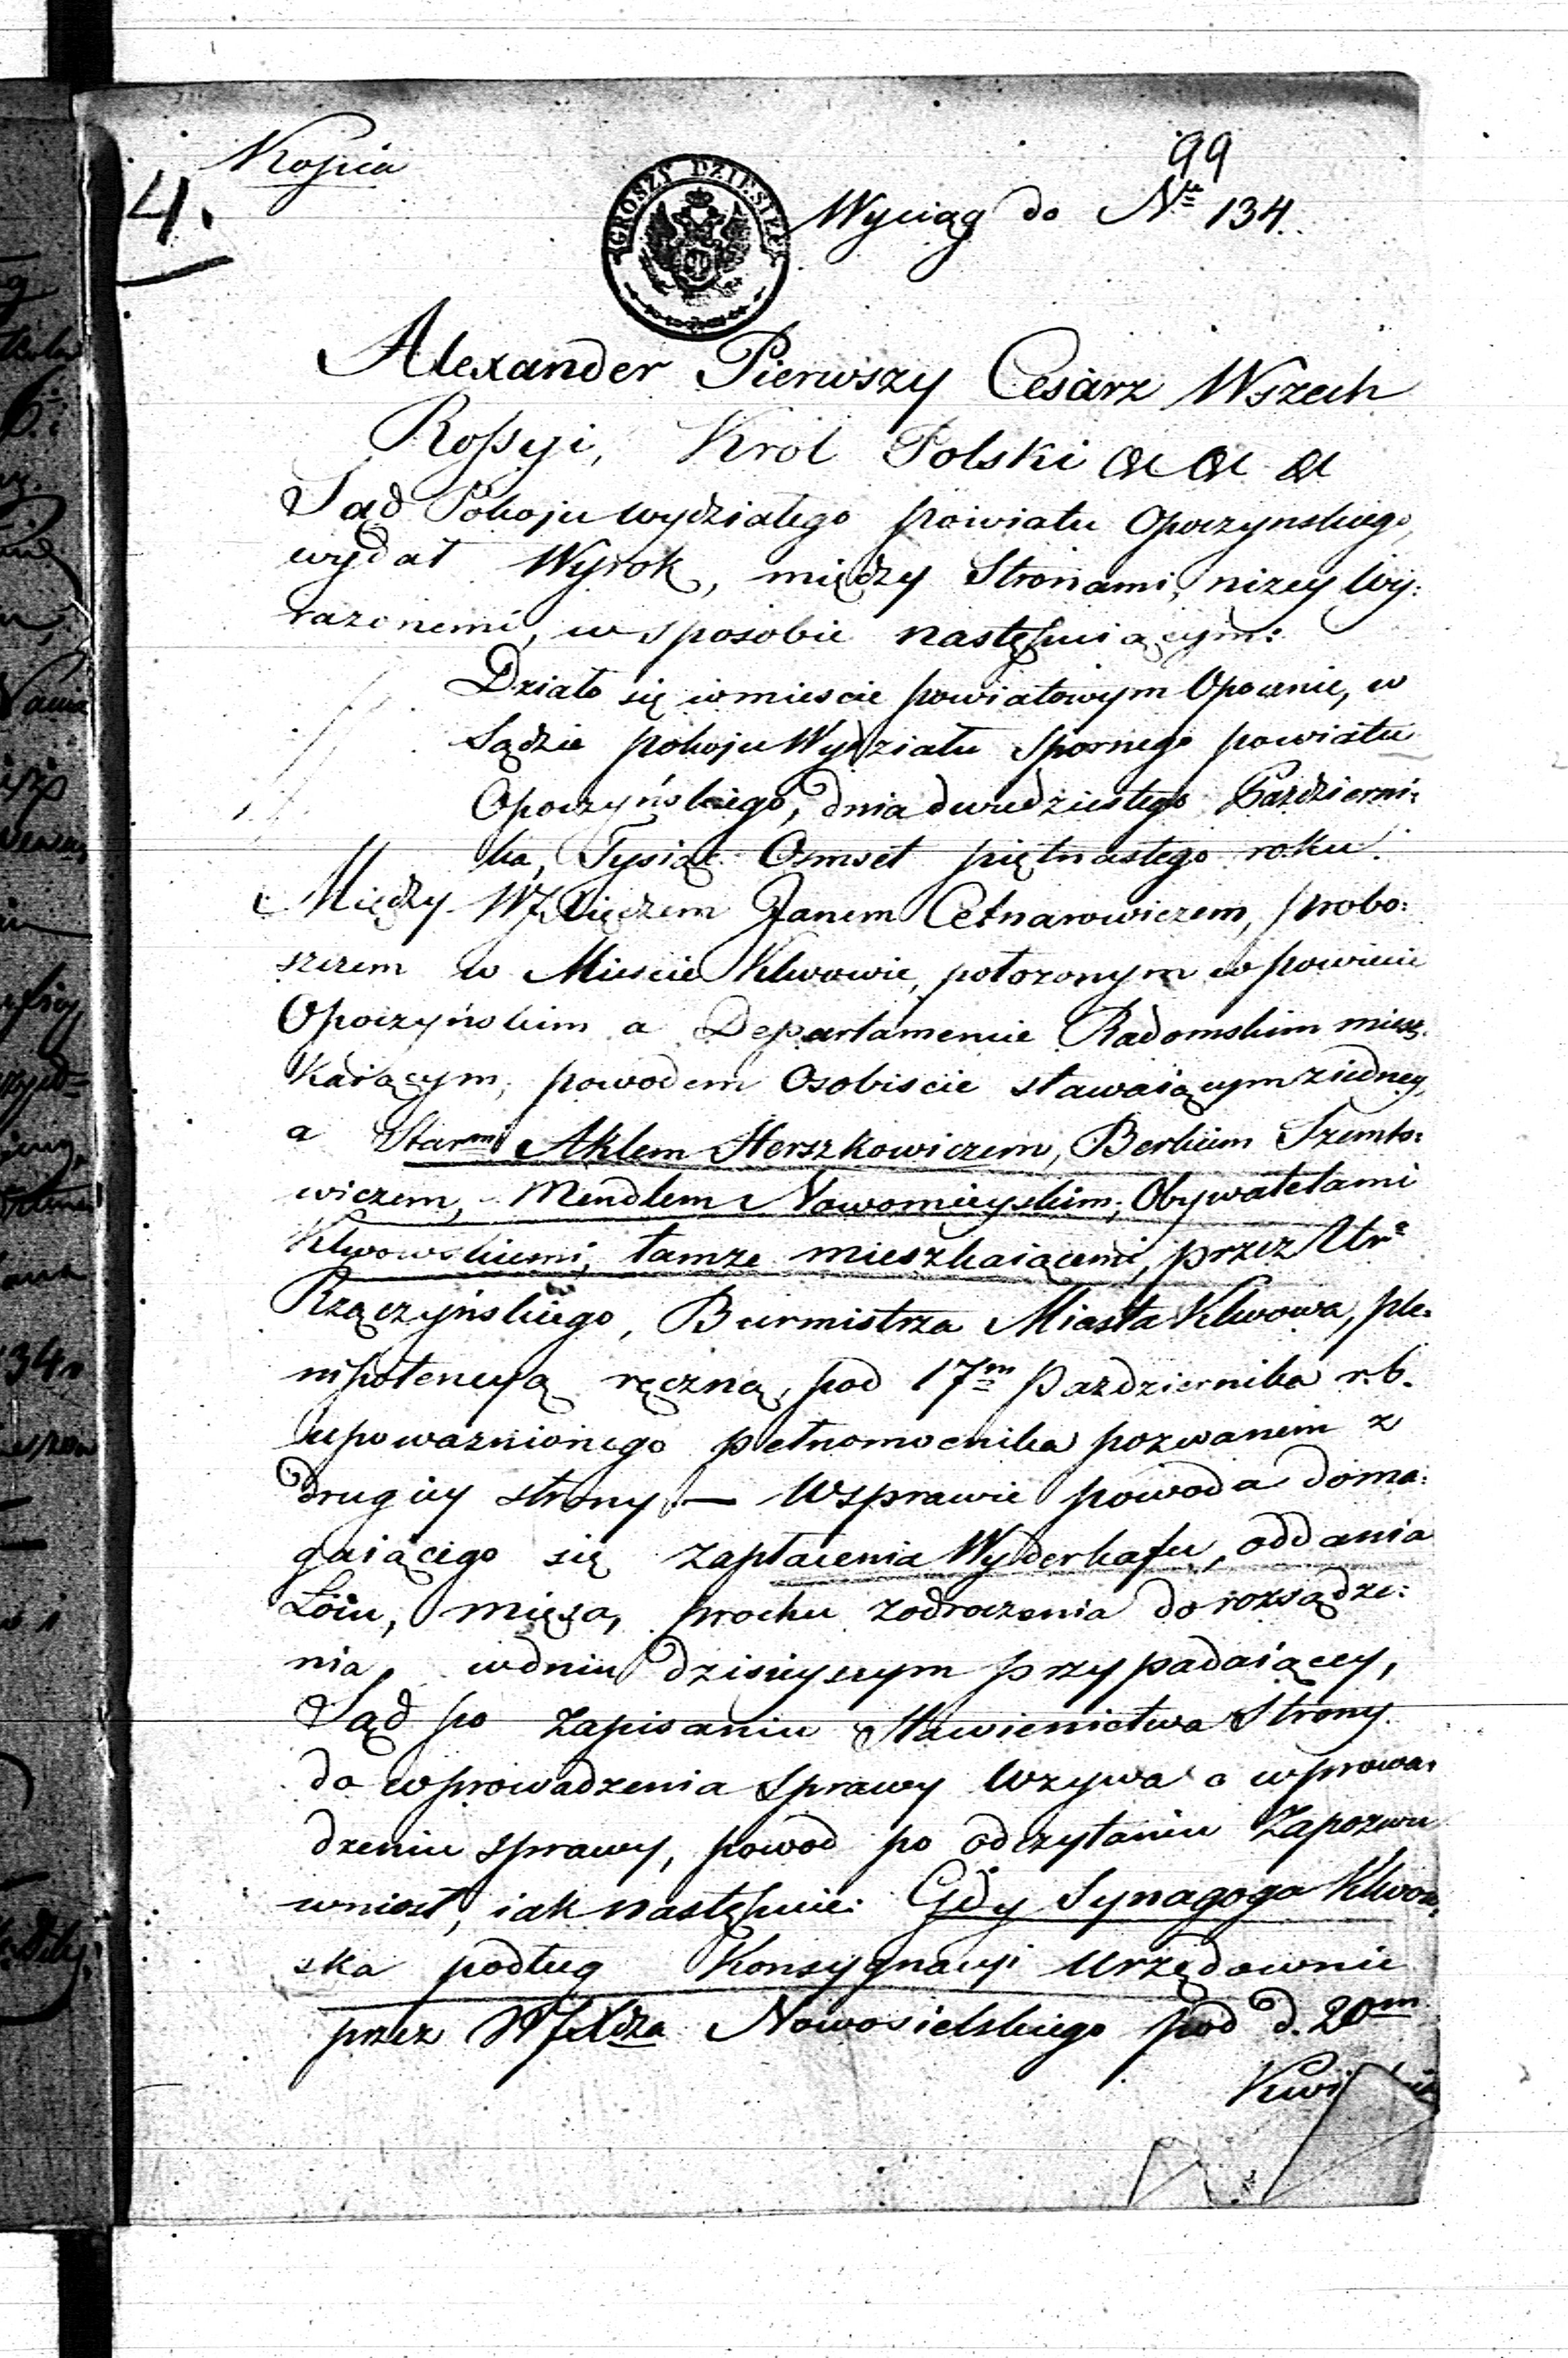 99
Kopia
4.
GROSZY DZIESIĘĆ
Wyciąg do Nº 134.
Alexander Pierwszy Cesarz Wszech
Rossyi, Krol Polski &c &c &c
Sąd Pokoju wydziałego powiatu Opoczynskiego,
wydał Wyrok, między Stronami, nizey Wy:
razonemi, w sposobie następuiącym:
Działo się w miescie powiatowym Opocznie, w
Sądzie pokoju Wydziału Spornego powiatu
Opoczyńskiego, dnia dwudziestego Pazdzierni:
ka, Tysiąc Osmset piętnastego roku.
Między WJ Xiędzem Janem Cetnarowiczem, probo:
szczem w Miescie Klwowie, połozonym w powiecie
Opoczyńskim a Departamencie Radomskim miesz:
kaiącym, powodem Osobiscie stawaiącym z iedney,
a Starmi Aklem Herszkowiczem, Berkiem Szemlo:
wiczem, Mendlem Nowomieyskim, Obywatelami
Klwowskiemi, tamze mieszkaiącemi, przez Ur
Rzączyńskiego, Burmistrza Miasta Klwowa, ple:
nipotencyą ręczną, pod 17m Pazdziernika r.b.
upowaznionego pełnomocnika pozwanem z
drugiey strony — W sprawie powoda doma:
gaiącego się zapłacenia Wyderkafu, oddania
Łoiu, mięsa, prochu z odroczenia do rozsądze:
nia, w dniu dzisieyszym przypadaiącey,
Sąd po zapisaniu Stawienictwa Strony
do wprowadzenia sprawy wzywa o wprowa:
dzeniu sprawy, powod po odczytaniu Zapozwu
wniosł, iak następuie: Gdy Synagoga Klwow:
ska podług Konsygnacyi Urzędownie
przez WJ Xdza Nowosielskiego pod d. 20m